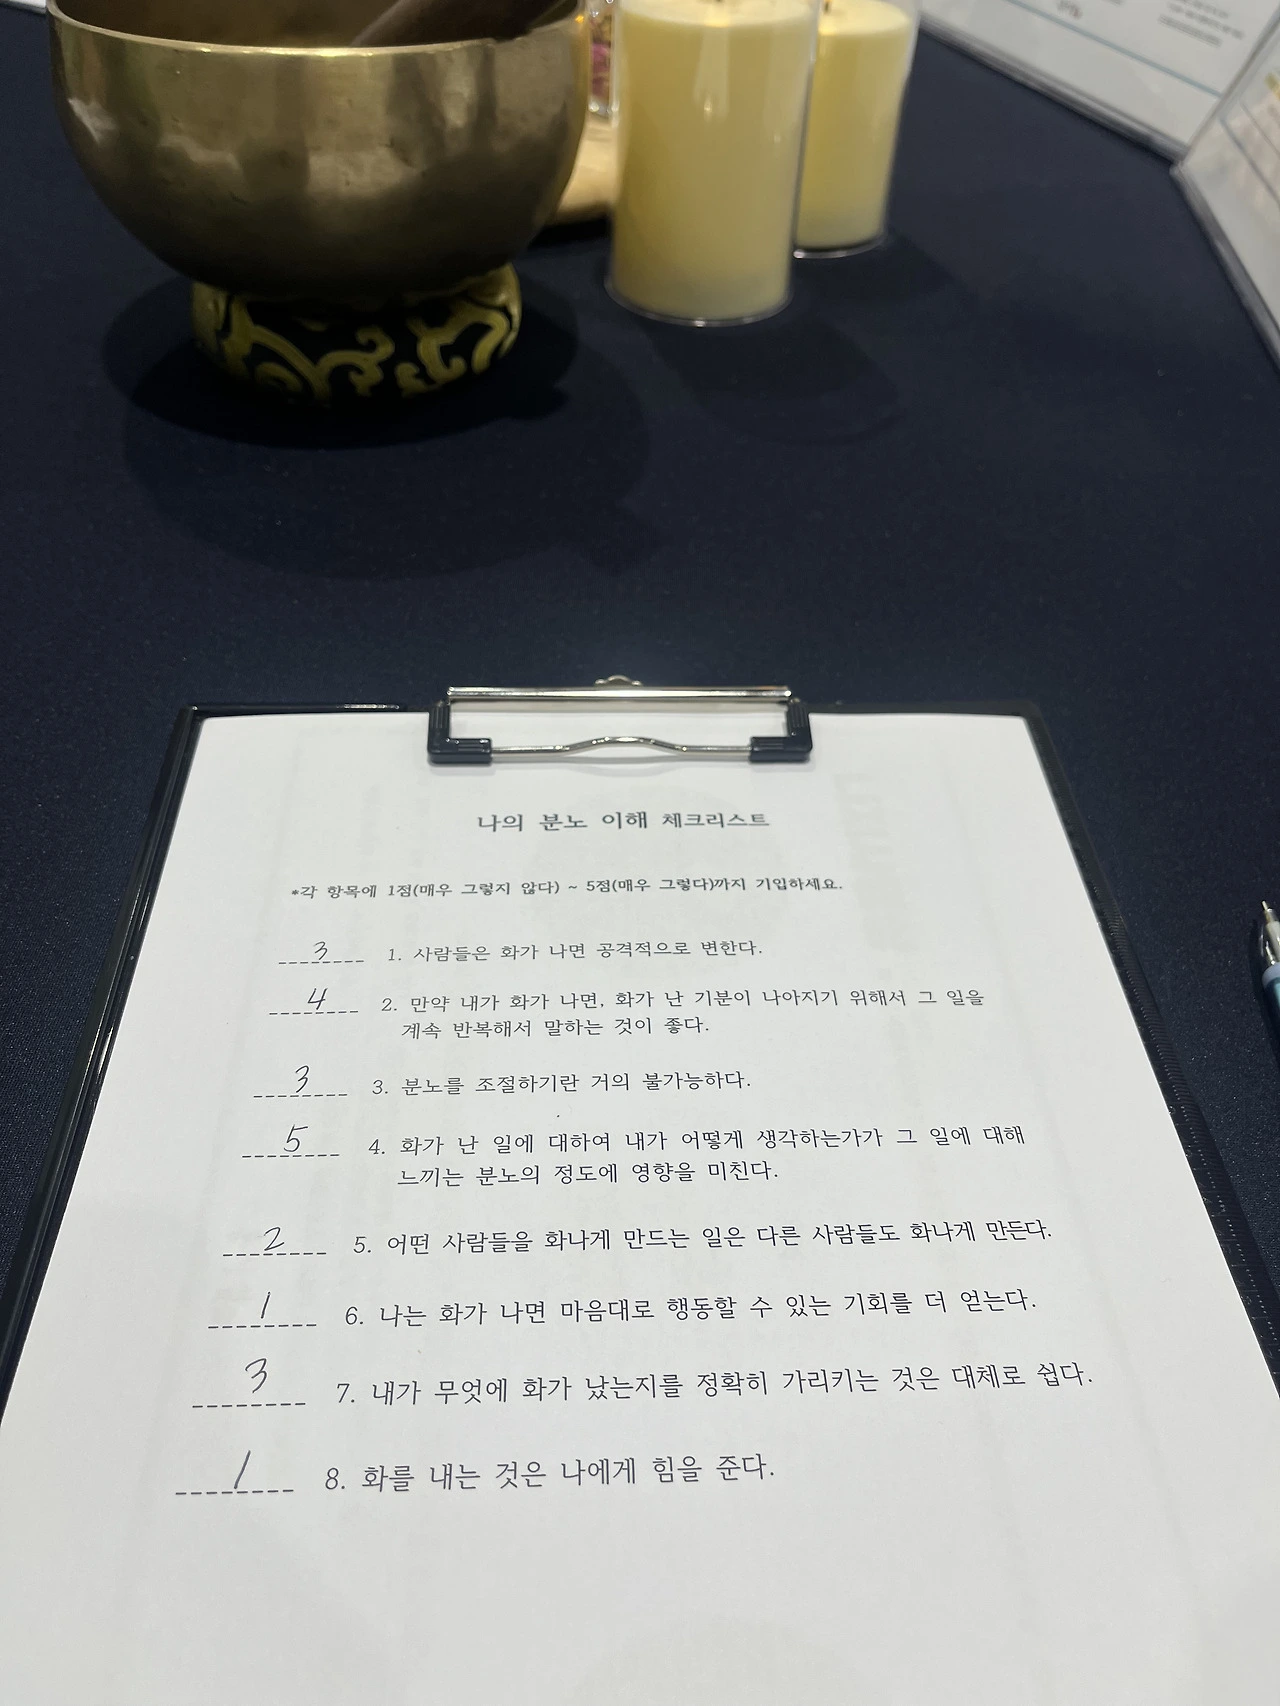 나의 분노 이해 체크리스트
*각 항목에 1점(매우 그렇지 않다) ~ 5점(매우 그렇다)까지 기입하세요.
3 1. 사람들은 화가 나면 공격적으로 변한다.
4 2. 만약 내가 화가 나면, 화가 난 기분이 나아지기 위해서 그 일을
계속 반복해서 말하는 것이 좋다.
3 3. 분노를 조절하기란 거의 불가능하다.
5 4. 화가 난 일에 대하여 내가 어떻게 생각하는가가 그 일에 대해
느끼는 분노의 정도에 영향을 미친다.
2 5. 어떤 사람들을 화나게 만드는 일은 다른 사람들도 화나게 만든다.
1 6. 나는 화가 나면 마음대로 행동할 수 있는 기회를 더 얻는다.
3 7. 내가 무엇에 화가 났는지를 정확히 가리키는 것은 대체로 쉽다.
1 8. 화를 내는 것은 나에게 힘을 준다.